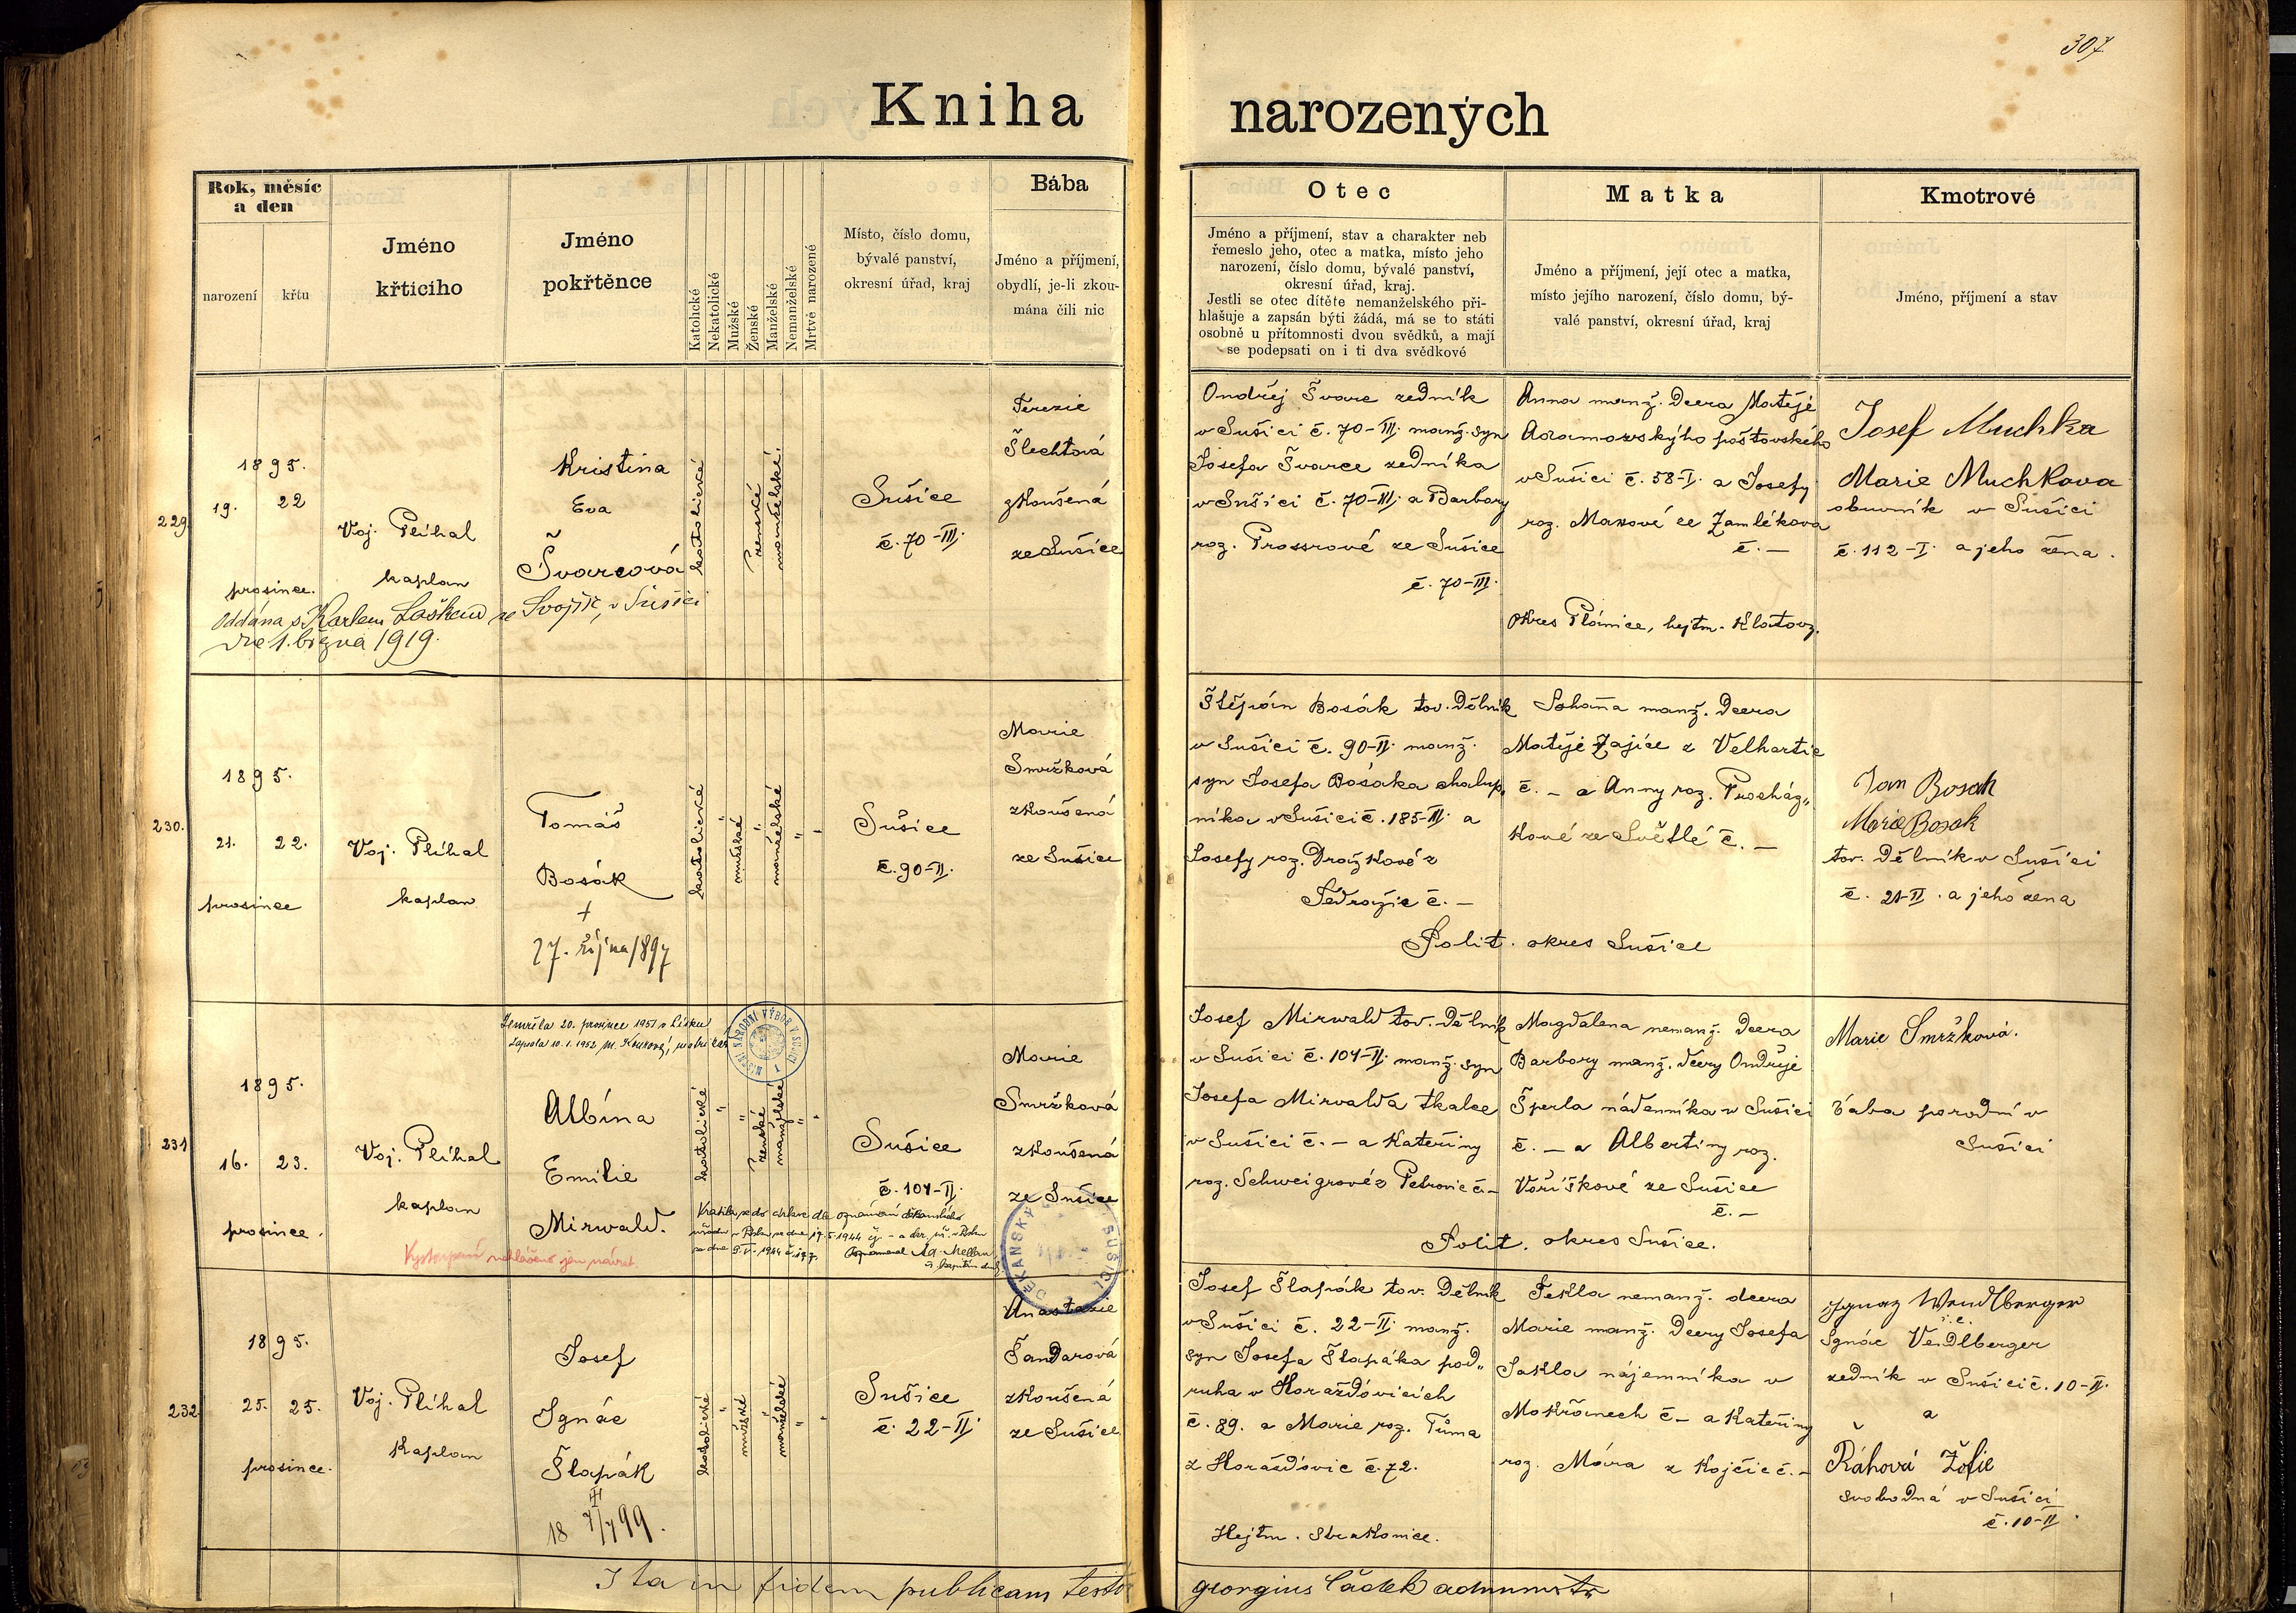 307
Kniha narozených
Rok, měsíc
a den
narození
křtu
Jméno
křticího
Jméno
pokřtěnce
Katolické
Nekatolické
Mužské
Ženské
Manželské
Nemanželské
Mrtvě narozené
Místo, číslo domu,
bývalé panství,
okresní úřad, kraj
Bába
Jméno a příjmení,
obydlí, je-li zkou-
mána čili nic
Otec
Jméno a příjmení, stav a charakter neb
řemeslo jeho, otec a matka, místo jeho
narození, číslo domu, bývalé panství,
okresní úřad, kraj.
Jestli se otec dítěte nemanželského při-
hlašuje a zapsán býti žádá, má se to státi
osobně u přítomnosti dvou svědků, a mají
se podepsati on i ti dva svědkové
Matka
Jméno a příjmení, její otec a matka,
místo jejího narození, číslo domu, bý-
valé panství, okresní úřad, kraj
Kmotrové
Jméno, příjmení a stav
229.
1895.
19. 22
prosince.
Voj. Plíhal
kaplan
Kristina
Eva
Švarcová
katolické
ženské
manželské.
Sušice
č. 70-III.
Terezie
Šlechtová
zkoušená
ze Sušice
Oddána s Karlem Laškem ze Svojšic, v Sušici
dne 1. března 1919.
Ondřej Švarc zedník
v Sušici č. 70-III. manž. syn
Josefa Švarce zedníka
v Sušici č. 70-III. a Barbory
roz. Prossrové ze Sušice
č. 70-III.
Anna manž. dcera Matěje
Adamovskýho pošťovského
v Sušici č. 58-I. a Josefy
roz. Maxové ze Zamlékova
č. —
okres Plánice, hejtm. Klatovy.
Josef Muchka
Marie Muchkova
obuvník v Sušici
č. 112-I. a jeho žena.
230.
1895.
21. 22.
prosince
Voj. Plíhal
kaplan
Tomáš
Bosák
+
27. října 1897
katolické
mužské
manželské
Sušice
č. 90-II.
Marie
Smržková
zkoušená
ze Sušice
Štěpán Bosák tov. dělník
v Sušici č. 90-II. manž.
syn Josefa Bosáka chalup„
níka v Sušici č. 185-II. a
Josefy roz. Dražkové z
Tedražic č. —
Johana manž. dcera
Matěje Zajíce z Velhartic
č. — a Anny roz. Procház„
kové ze Světlé č. —
Polit. okres Sušice
Jan Bosak
Marie Bosak
tov. dělník v Sušici
č. 21-II. a jeho žena
231
1895.
16. 23.
prosince.
Voj. Plíhal
kaplan
Zemřela 20. prosince 1951 v Písku
Zapsáno 10. 1. 1952
MÍSTNÍ NÁRODNÍ VÝBOR V SUŠICI 1
Albína
Emilie
Mirwald.
katolické
ženské
manželské
Sušice
č. 104-II.
Marie
Smržková
zkoušená
ze Sušice
Vrátila se do církve dle oznámení děkanského
úřadu v Písku ze dne 19. 5. 1944
DĚKANSKÝ SUŠICI
Vystoupení nehlášeno jen návrat.
Josef Mirwald tov. dělník
v Sušici č. 104-II. manž. syn
Josefa Mirvalda tkalce
v Sušici č. — a Kateřiny
roz. Schweigrové z Petrovic č. —
Magdalena nemanž. dcera
Barbory manž. dcery Ondřeje
Šperla nádenníka v Sušici
č. — a Albertiny roz.
Voříškové ze Sušice
č. —
Polit. okres Sušice.
Marie Smržková.
bába porodní v
Sušici
232.
1895.
25. 25.
prosince.
Voj. Plíhal
kaplan
Josef
Ignác
Šlapák
18 7/7 99.
katolické
mužské
manželské
Sušice
č. 22-II.
Anastazie
Šandarová
zkoušená
ze Sušice
Josef Šlapák tov. dělník
v Sušici č. 22-II. manž.
syn Josefa Šlapáka pod„
ruha v Horažďovicích
č. 89. a Marie roz. Tůma
z Horažďovic č. 72.
Hejtm. Strakonice.
Tekla nemanž. dcera
Marie manž. dcery Josefa
Jakla nájemníka v
Mokřanech č — a Kateřiny
roz. Mára z Kojčic č. —
Ignaz Wendlberger
Ignác Vendlberger
zedník v Sušici č. 10-II.
a
Řáhová Žofie
svobodná v Sušici
č. 10-II.
Ita in fidem publicam testor georgius Čádek administr